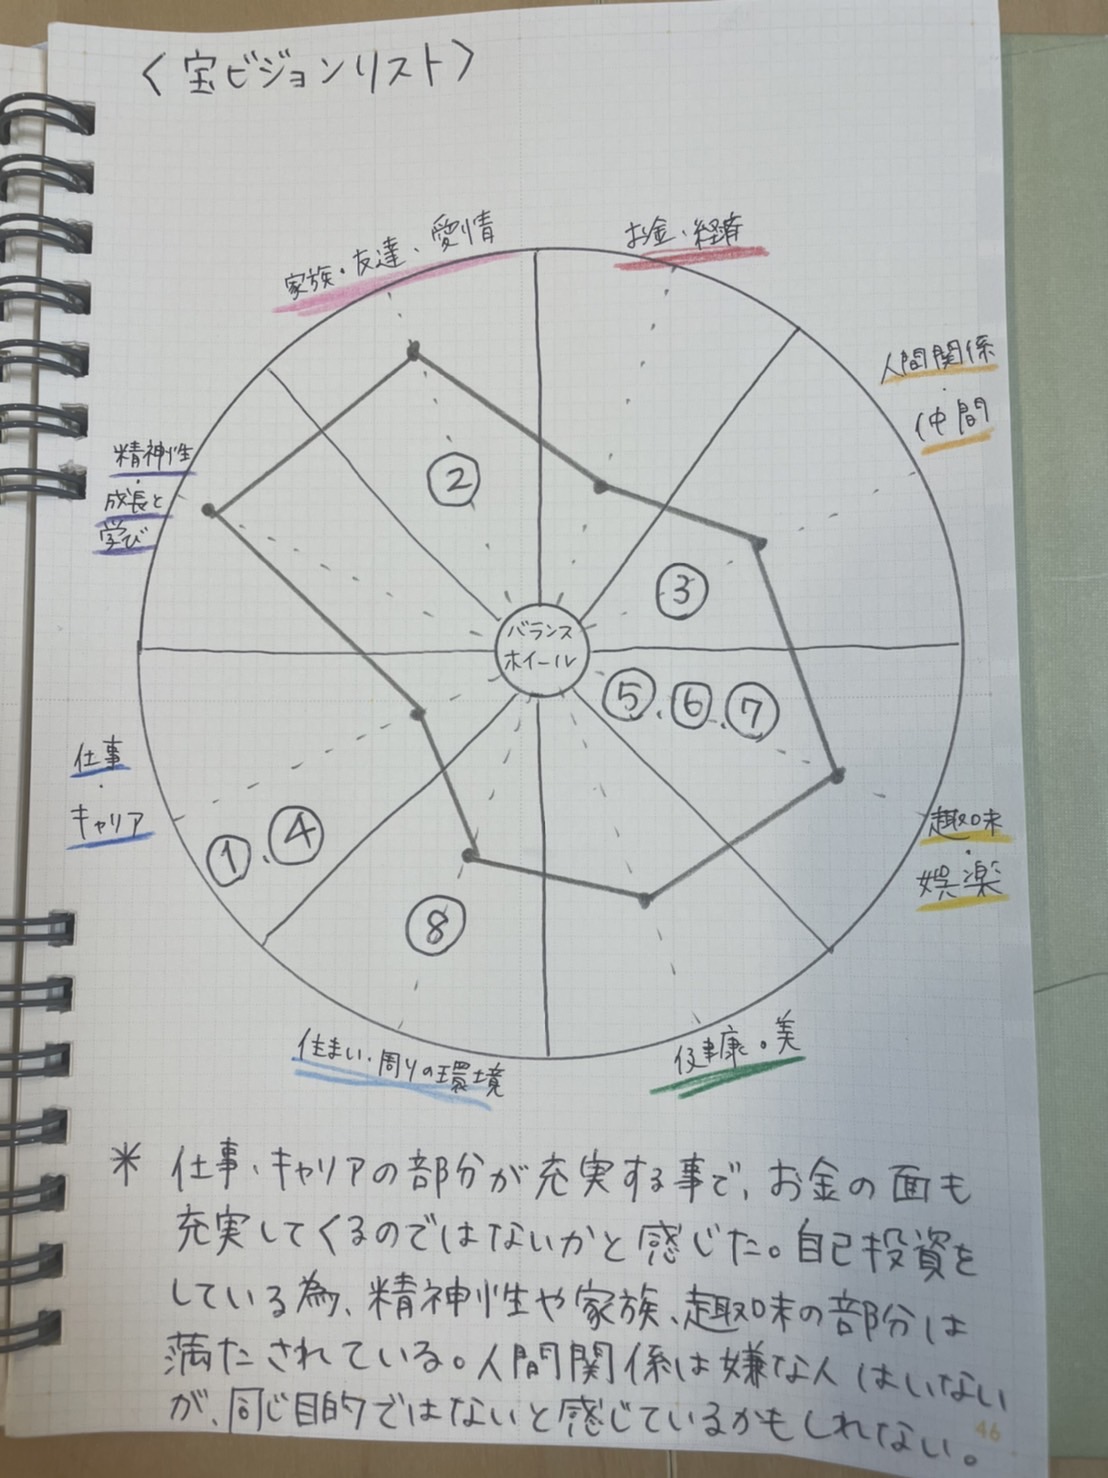 〈宝ビジョンリスト〉
家族・友達、愛情
お金・経済
人間関係
・
仲間
精神性
・
成長と
学び
②
③
バランス
ホイール
⑤、⑥、⑦
仕事
・
キャリア
①、④
趣味
・
娯楽
⑧
住まい・周りの環境
健康・美
* 仕事、キャリアの部分が充実する事で、お金の面も
充実してくるのではないかと感じた。自己投資を
している為、精神性や家族、趣味の部分は
満たされている。人間関係は嫌な人はいない
が、同じ目的ではないと感じているかもしれない。
46